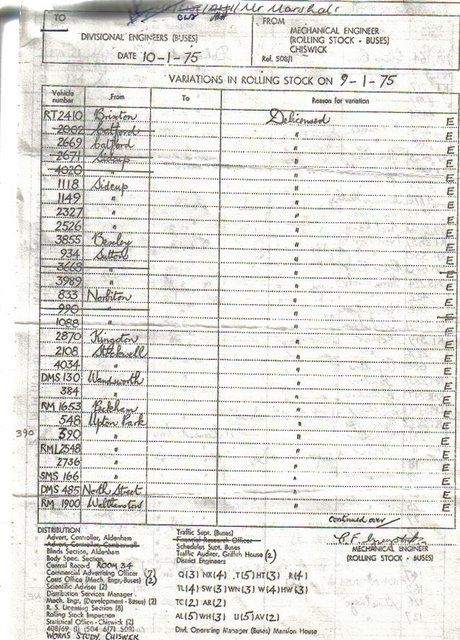 TO
Mr Marshall
FROM
DIVISIONAL ENGINEERS (BUSES)
MECHANICAL ENGINEER
(ROLLING STOCK - BUSES)
CHISWICK
DATE 10-1-75
Ref. 508/1
VARIATIONS IN ROLLING STOCK ON 9-1-75
Vehicle number From To Reason for variation
RT2410 Brixton Delicensed E
2002 Catford " E
2669 Catford " E
2671 Sidcup " E
4020 " " E
1118 Sidcup " E
1149 " " E
2327 " " E
2526 " " E
3855 Bexley " E
934 Sutton " E
3663 " " E
3989 " " E
833 Norbiton " E
990 " " E
1088 " " E
2870 Kingston " E
2108 Stockwell " E
4034 " " E
DMS 130 Wandsworth " E
384 " " E
RM 1653 Peckham " E
548 Upton Park " E
390 590 " " E
RML 2548 " " E
2736 " " E
SMS 166 " " E
DMS 485 North Street " E
RM 1900 Walthamstow " E
continued over
MECHANICAL ENGINEER
(ROLLING STOCK - BUSES)
DISTRIBUTION
Advert. Controller, Aldenham
Blinds Section, Aldenham
Body Spec. Section
Central Record ROOM 34
Commercial Advertising Officer (7)
Costs Office (Mech. Engr. Buses) (2)
Scientific Adviser (2)
Distribution Services Manager
Mech. Engr. (Development - Buses) (2)
R. S. Licensing Section (8)
Rolling Stock Inspection
Statistical Office - Chiswick (2)
WORKS STUDY, CHISWICK
Traffic Supt. (Buses)
Financial Research Officer
Schedules Supt. Buses
Traffic Auditor, Griffith House (2)
District Engineers
Q(3) NX(4) T(5) HT(3) R(4)
TL(4) SW(3) WN(3) W(4) HW(3)
TC(2) AR(2)
AL(5) WH(3) U(5) AV(2)
Divl. Operating Manager (Buses) Mansion House